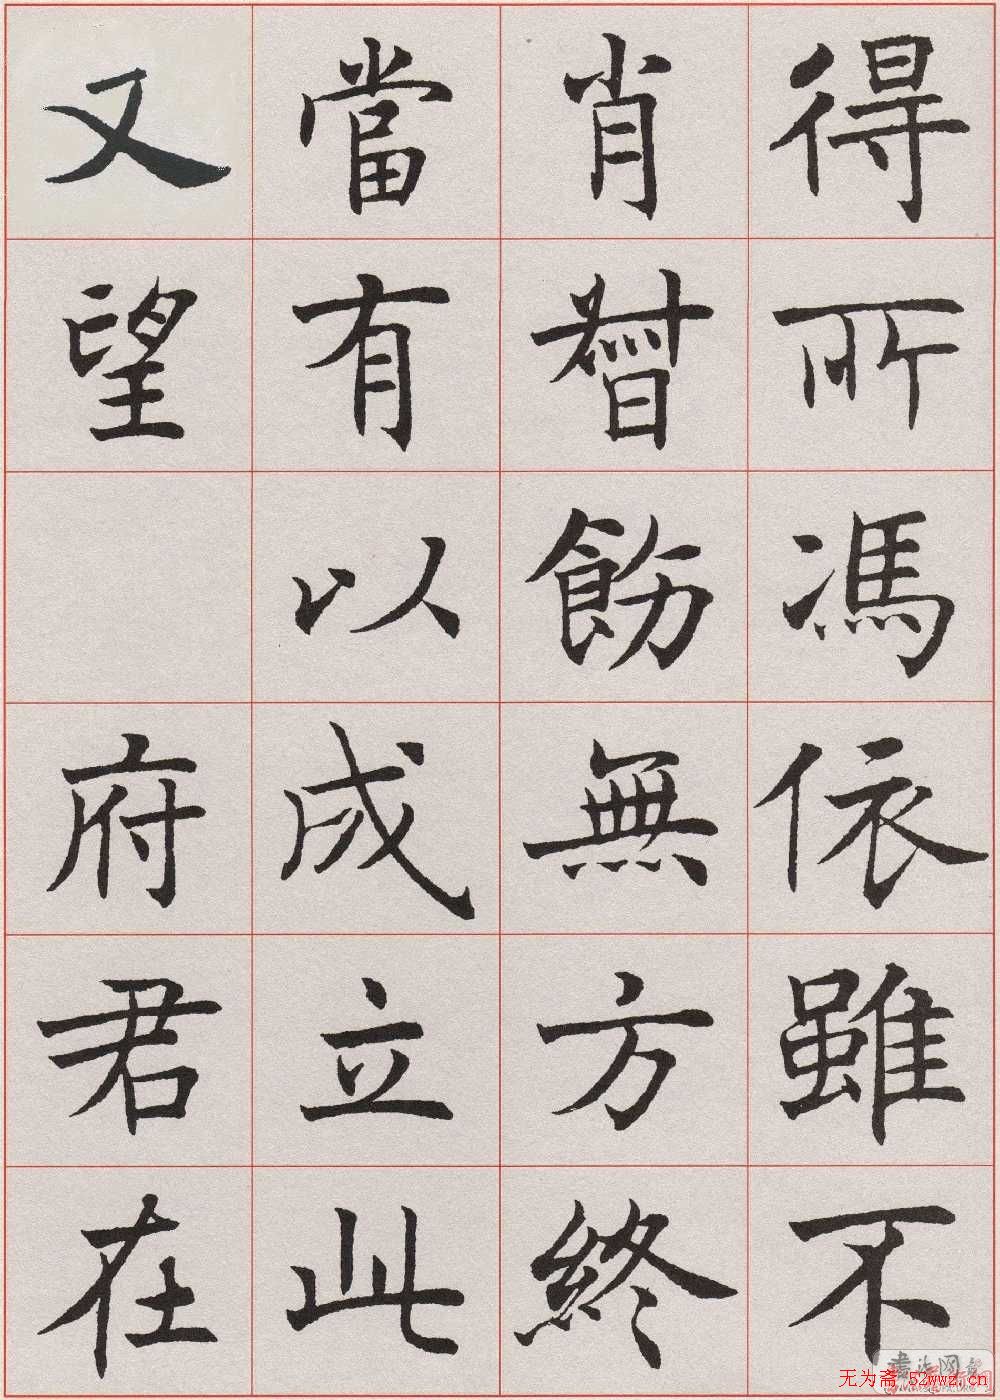 得所馮依雖不
肖督飭無方終
當有以成立此
又望 府君在
无为斋 52wwz.cn